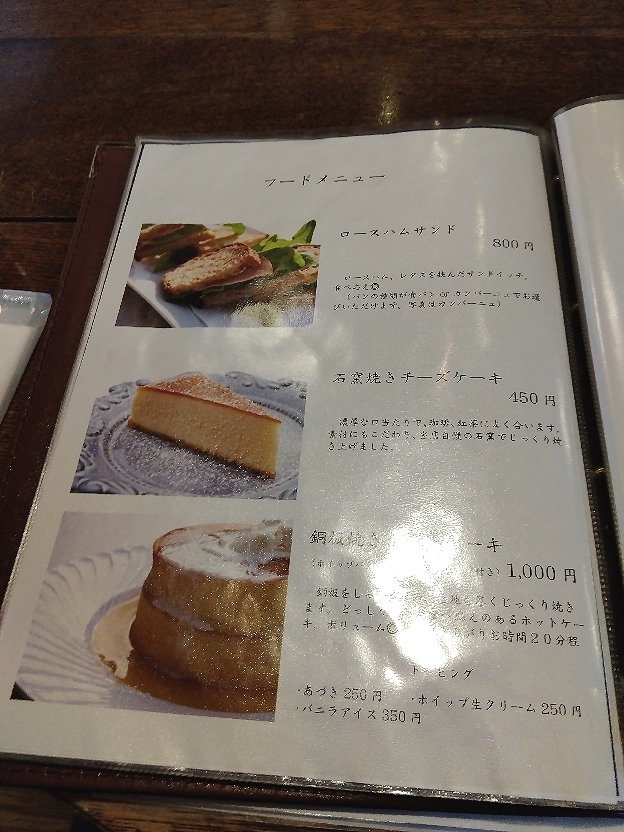 フードメニュー
ロースハムサンド
800円
ロースハム、レタスを挟んだサンドイッチ。
食べ応え
(パンの種類が食パン or カンパーニュでお選
びいただけます。写真はカンパーニュ)
石窯焼きチーズケーキ
450円
濃厚な口当たりで、珈琲、紅茶によく合います。
素材にもこだわり、当店自慢の石窯でじっくり焼
き上げました。
銅板焼き ーキ
(ホイップバ 付き) 1,000円
銅板をし 生地を厚くじっくり焼き
ます。どっし のあるホットケー
キ。ボリューム がりお時間20分程
トッピング
・あづき 250円 ・ホイップ生クリーム 250円
・バニラアイス 350円